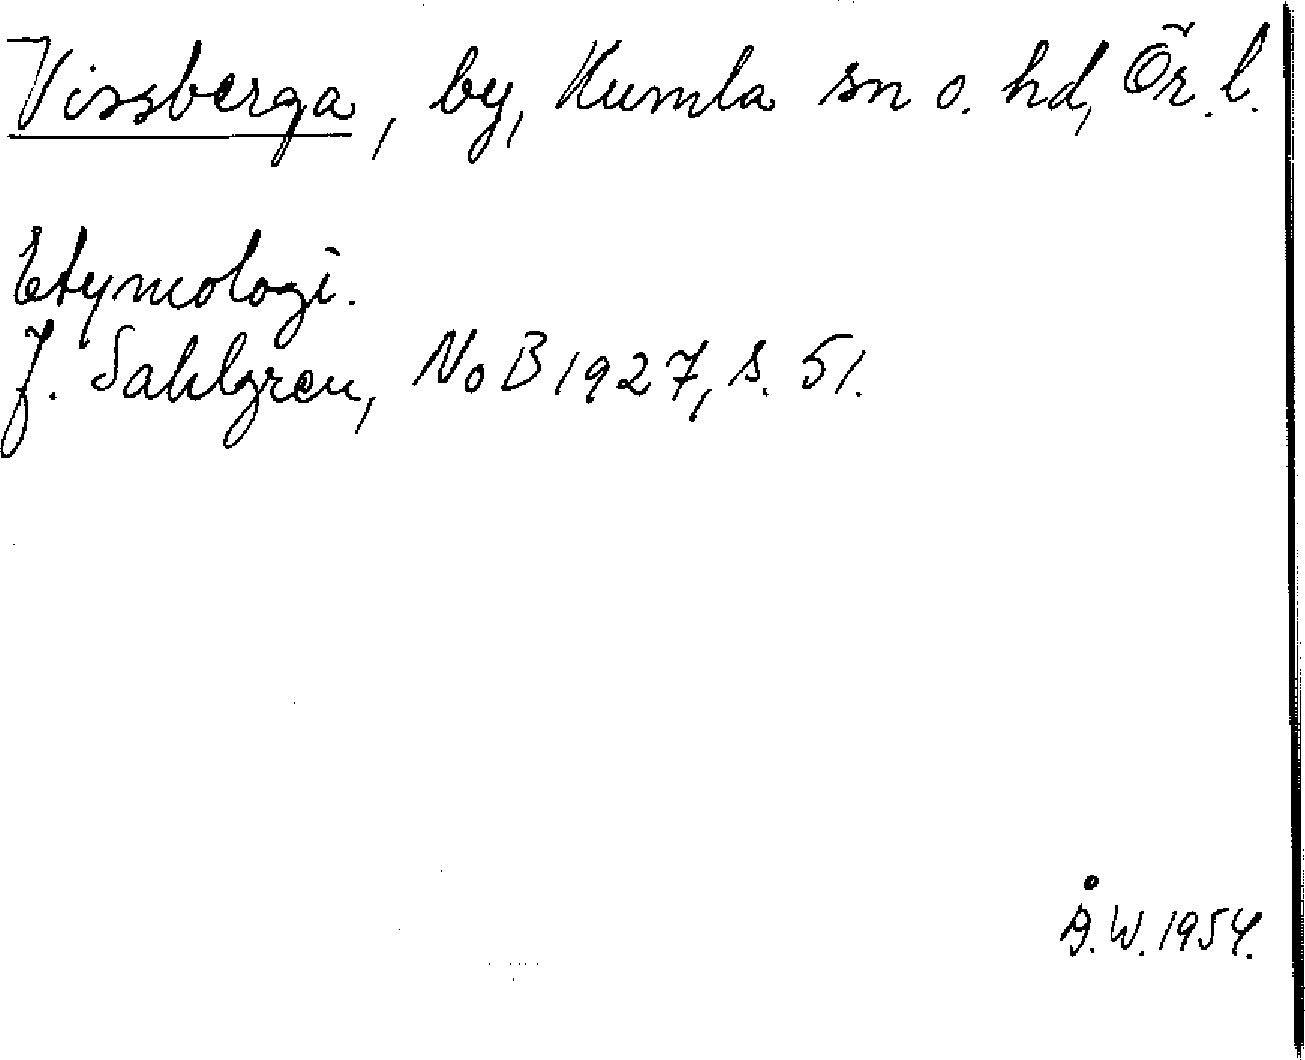 Vissberga, by, Kumla sn o. hd, Ör. l.
Etymologi.
J. Sahlgren, NoB 1927, s. 51.
Å.W. 1954.